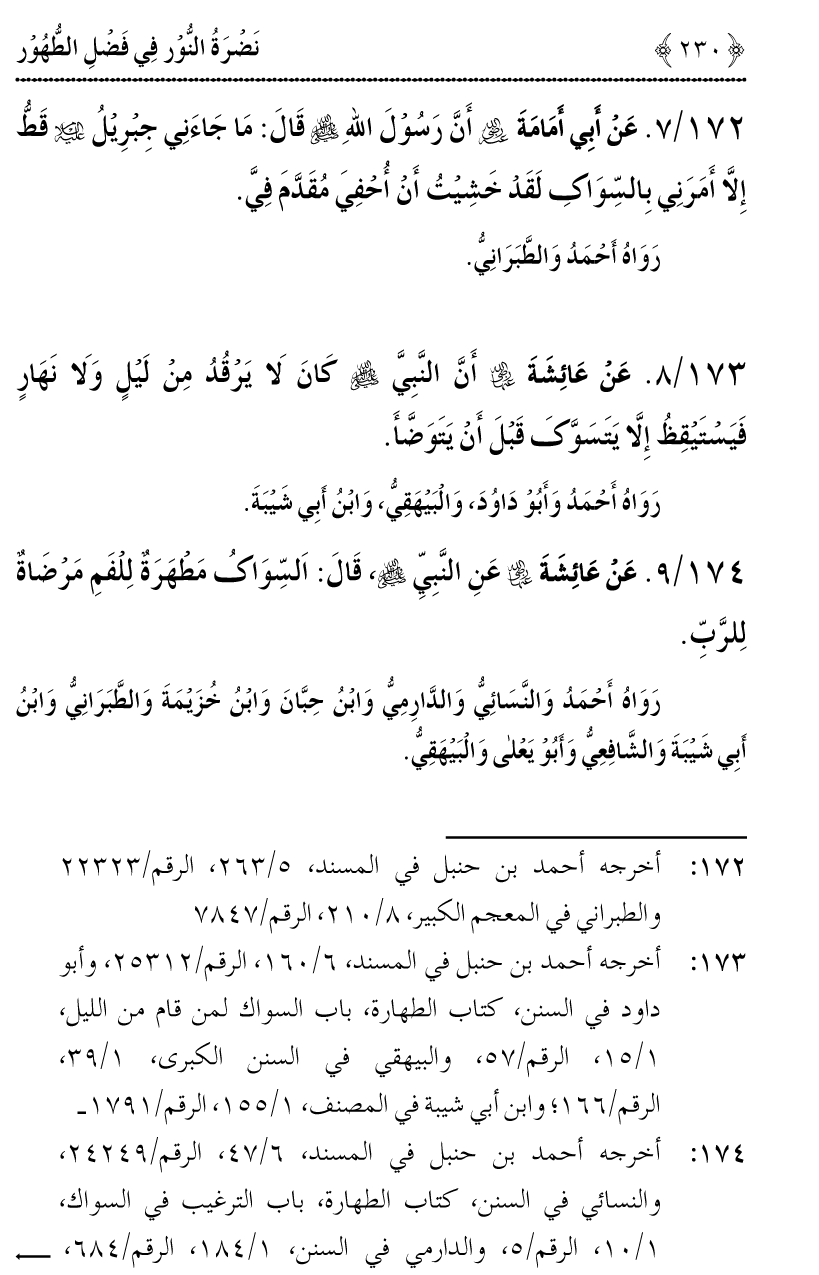 ﴿٢٣٠﴾ نَضْرَةُ النُّوْرِ فِي فَضْلِ الطُّهُوْرِ
٧/١٧٢. عَنْ أَبِي أُمَامَةَ ﷺ أَنَّ رَسُوْلَ اللهِ ﷺ قَالَ: مَا جَاءَنِي جِبْرِيْلُ قَطُّ
إِلَّا أَمَرَنِي بِالسِّوَاكِ لَقَدْ خَشِيْتُ أَنْ أُحْفِيَ مُقَدَّمَ فِيَّ.
رَوَاهُ أَحْمَدُ وَالطَّبَرَانِيُّ.
٨/١٧٣. عَنْ عَائِشَةَ أَنَّ النَّبِيَّ ﷺ كَانَ لَا يَرْقُدُ مِنْ لَيْلٍ وَلَا نَهَارٍ
فَيَسْتَيْقِظُ إِلَّا يَتَسَوَّكَ قَبْلَ أَنْ يَتَوَضَّأَ.
رَوَاهُ أَحْمَدُ وَأَبُوْ دَاوُدَ، وَالْبَيْهَقِيُّ، وَابْنُ أَبِي شَيْبَةَ.
٩/١٧٤. عَنْ عَائِشَةَ عَنِ النَّبِيِّ ﷺ، قَالَ: اَلسِّوَاكُ مَطْهَرَةٌ لِلْفَمِ مَرْضَاةٌ
لِلرَّبِّ.
رَوَاهُ أَحْمَدُ وَالنَّسَائِيُّ وَالدَّارِمِيُّ وَابْنُ حِبَّانَ وَابْنُ خُزَيْمَةَ وَالطَّبَرَانِيُّ وَابْنُ
أَبِي شَيْبَةَ وَالشَّافِعِيُّ وَأَبُوْ يَعْلٰى وَالْبَيْهَقِيُّ.
١٧٢: أخرجه أحمد بن حنبل في المسند، ٢٦٣/٥، الرقم/٢٢٣٢٣
والطبراني في المعجم الكبير، ٢١٠/٨، الرقم/٧٨٤٧
١٧٣: أخرجه أحمد بن حنبل في المسند، ١٦٠/٦، الرقم/٢٥٣١٢، وأبو
داود في السنن، كتاب الطهارة، باب السواك لمن قام من الليل،
١٥/١، الرقم/٥٧، والبيهقي في السنن الكبرى، ٣٩/١،
الرقم/١٦٦؛ وابن أبي شيبة في المصنف، ١٥٥/١، الرقم/١٧٩١-
١٧٤: أخرجه أحمد بن حنبل في المسند، ٤٧/٦، الرقم/٢٤٢٤٩،
والنسائي في السنن، كتاب الطهارة، باب الترغيب في السواك،
١٠/١، الرقم/٥، والدارمي في السنن، ١٨٤/١، الرقم/٦٨٤، ←